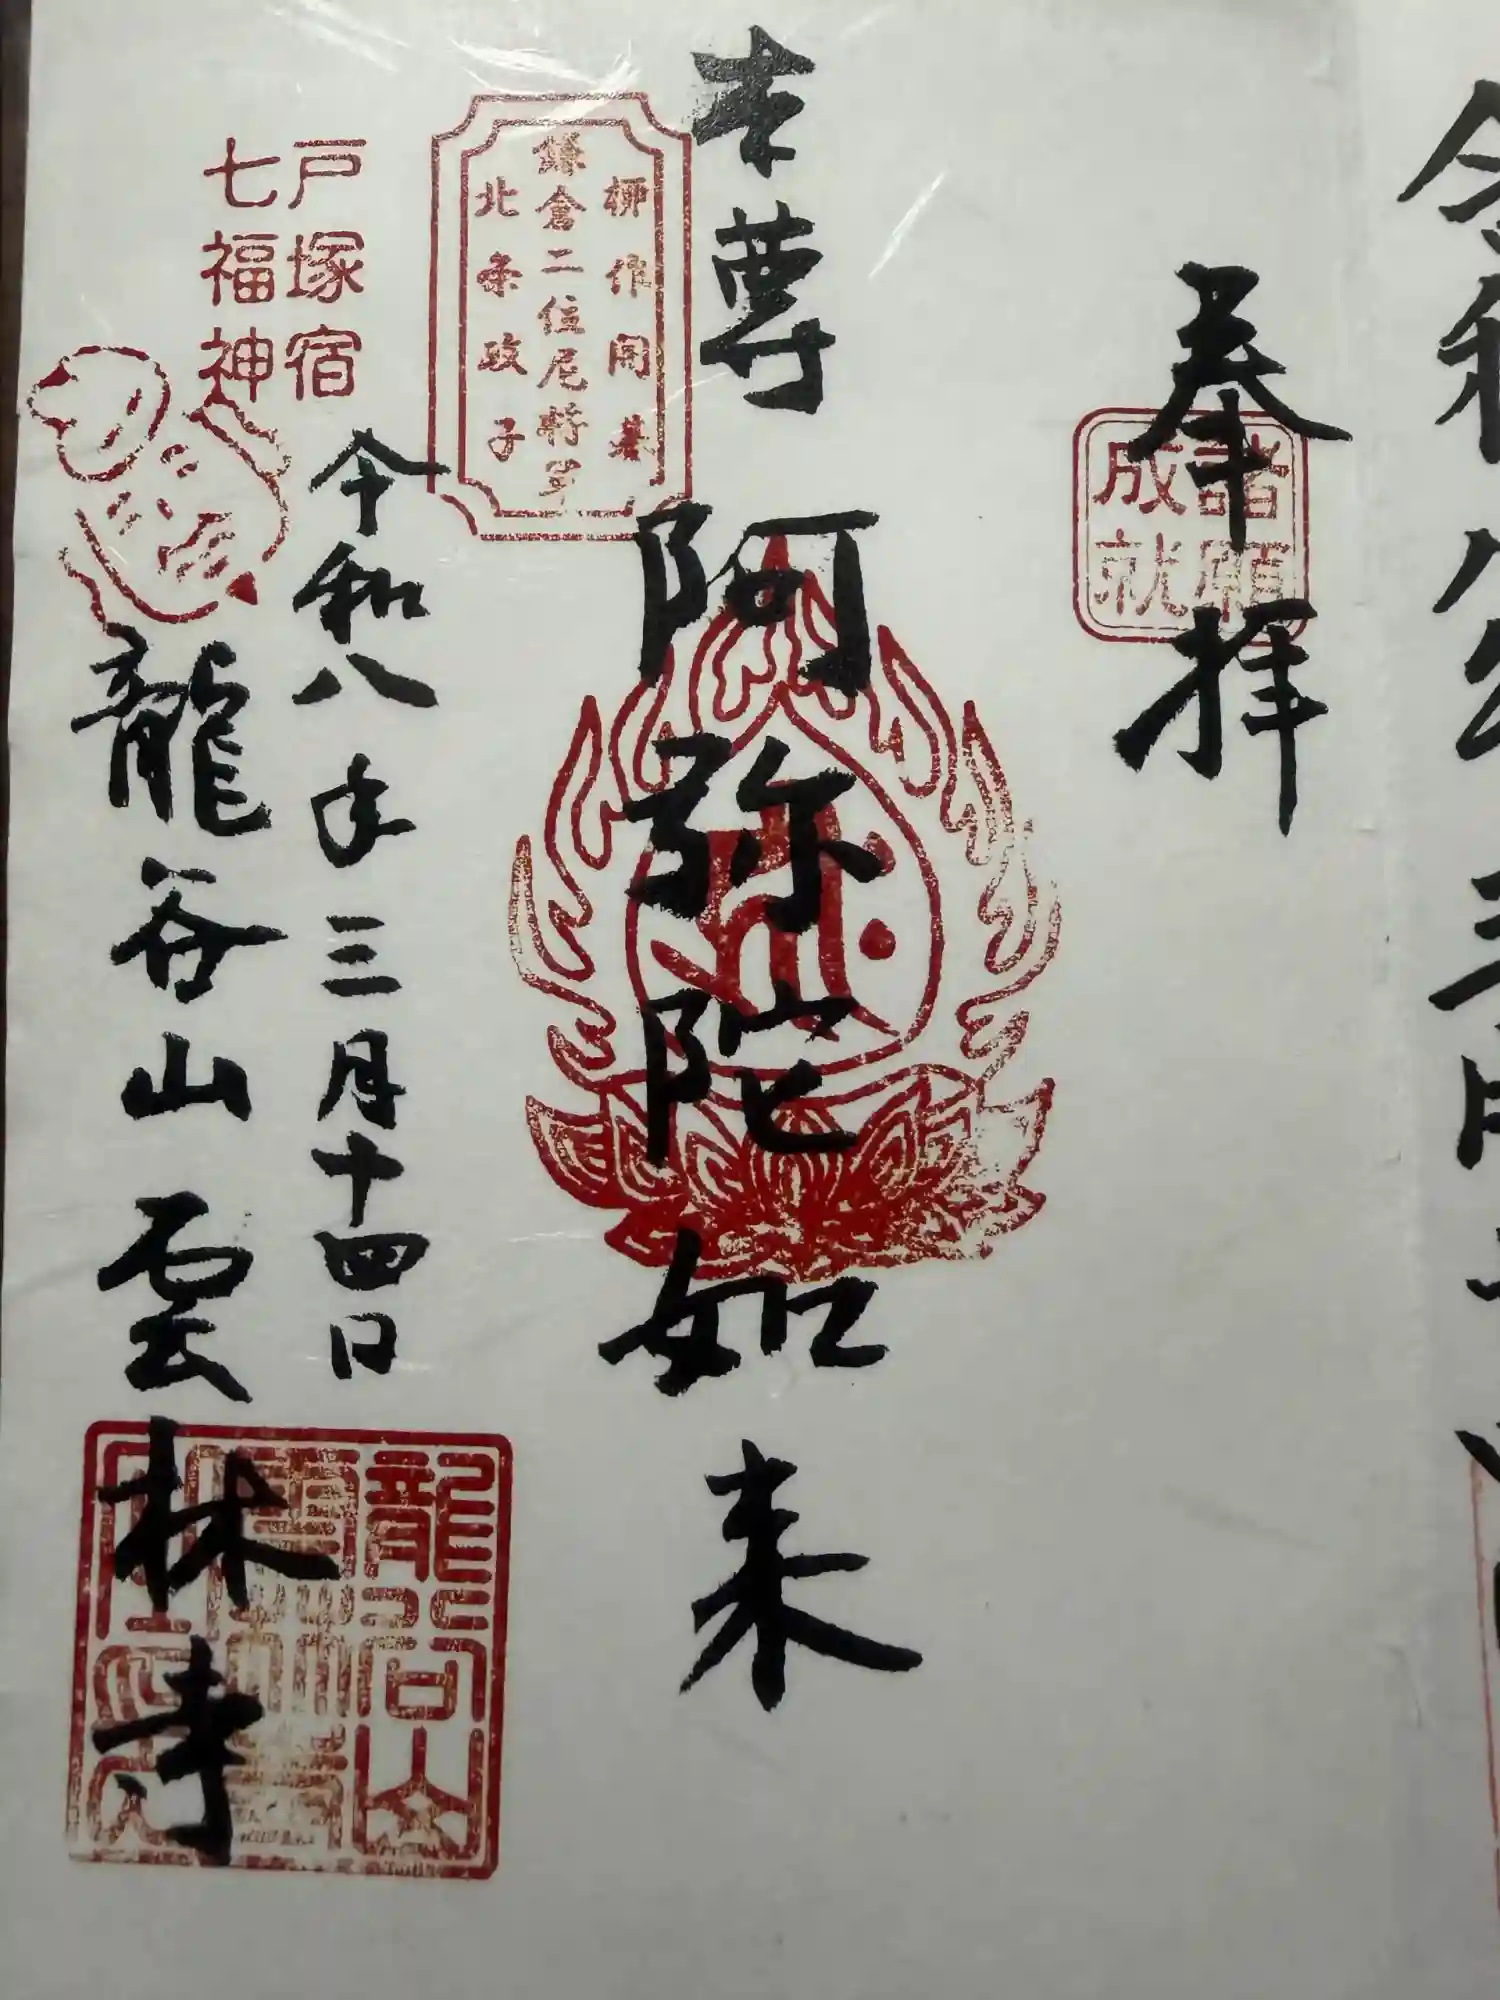 奉拝
諸願
成就
本尊
阿弥陀如来
御作開基
鎌倉二位尼将軍
北条政子
戸塚宿
七福神
令和八年三月十四日
龍谷山雲林寺
龍谷山
雲林寺